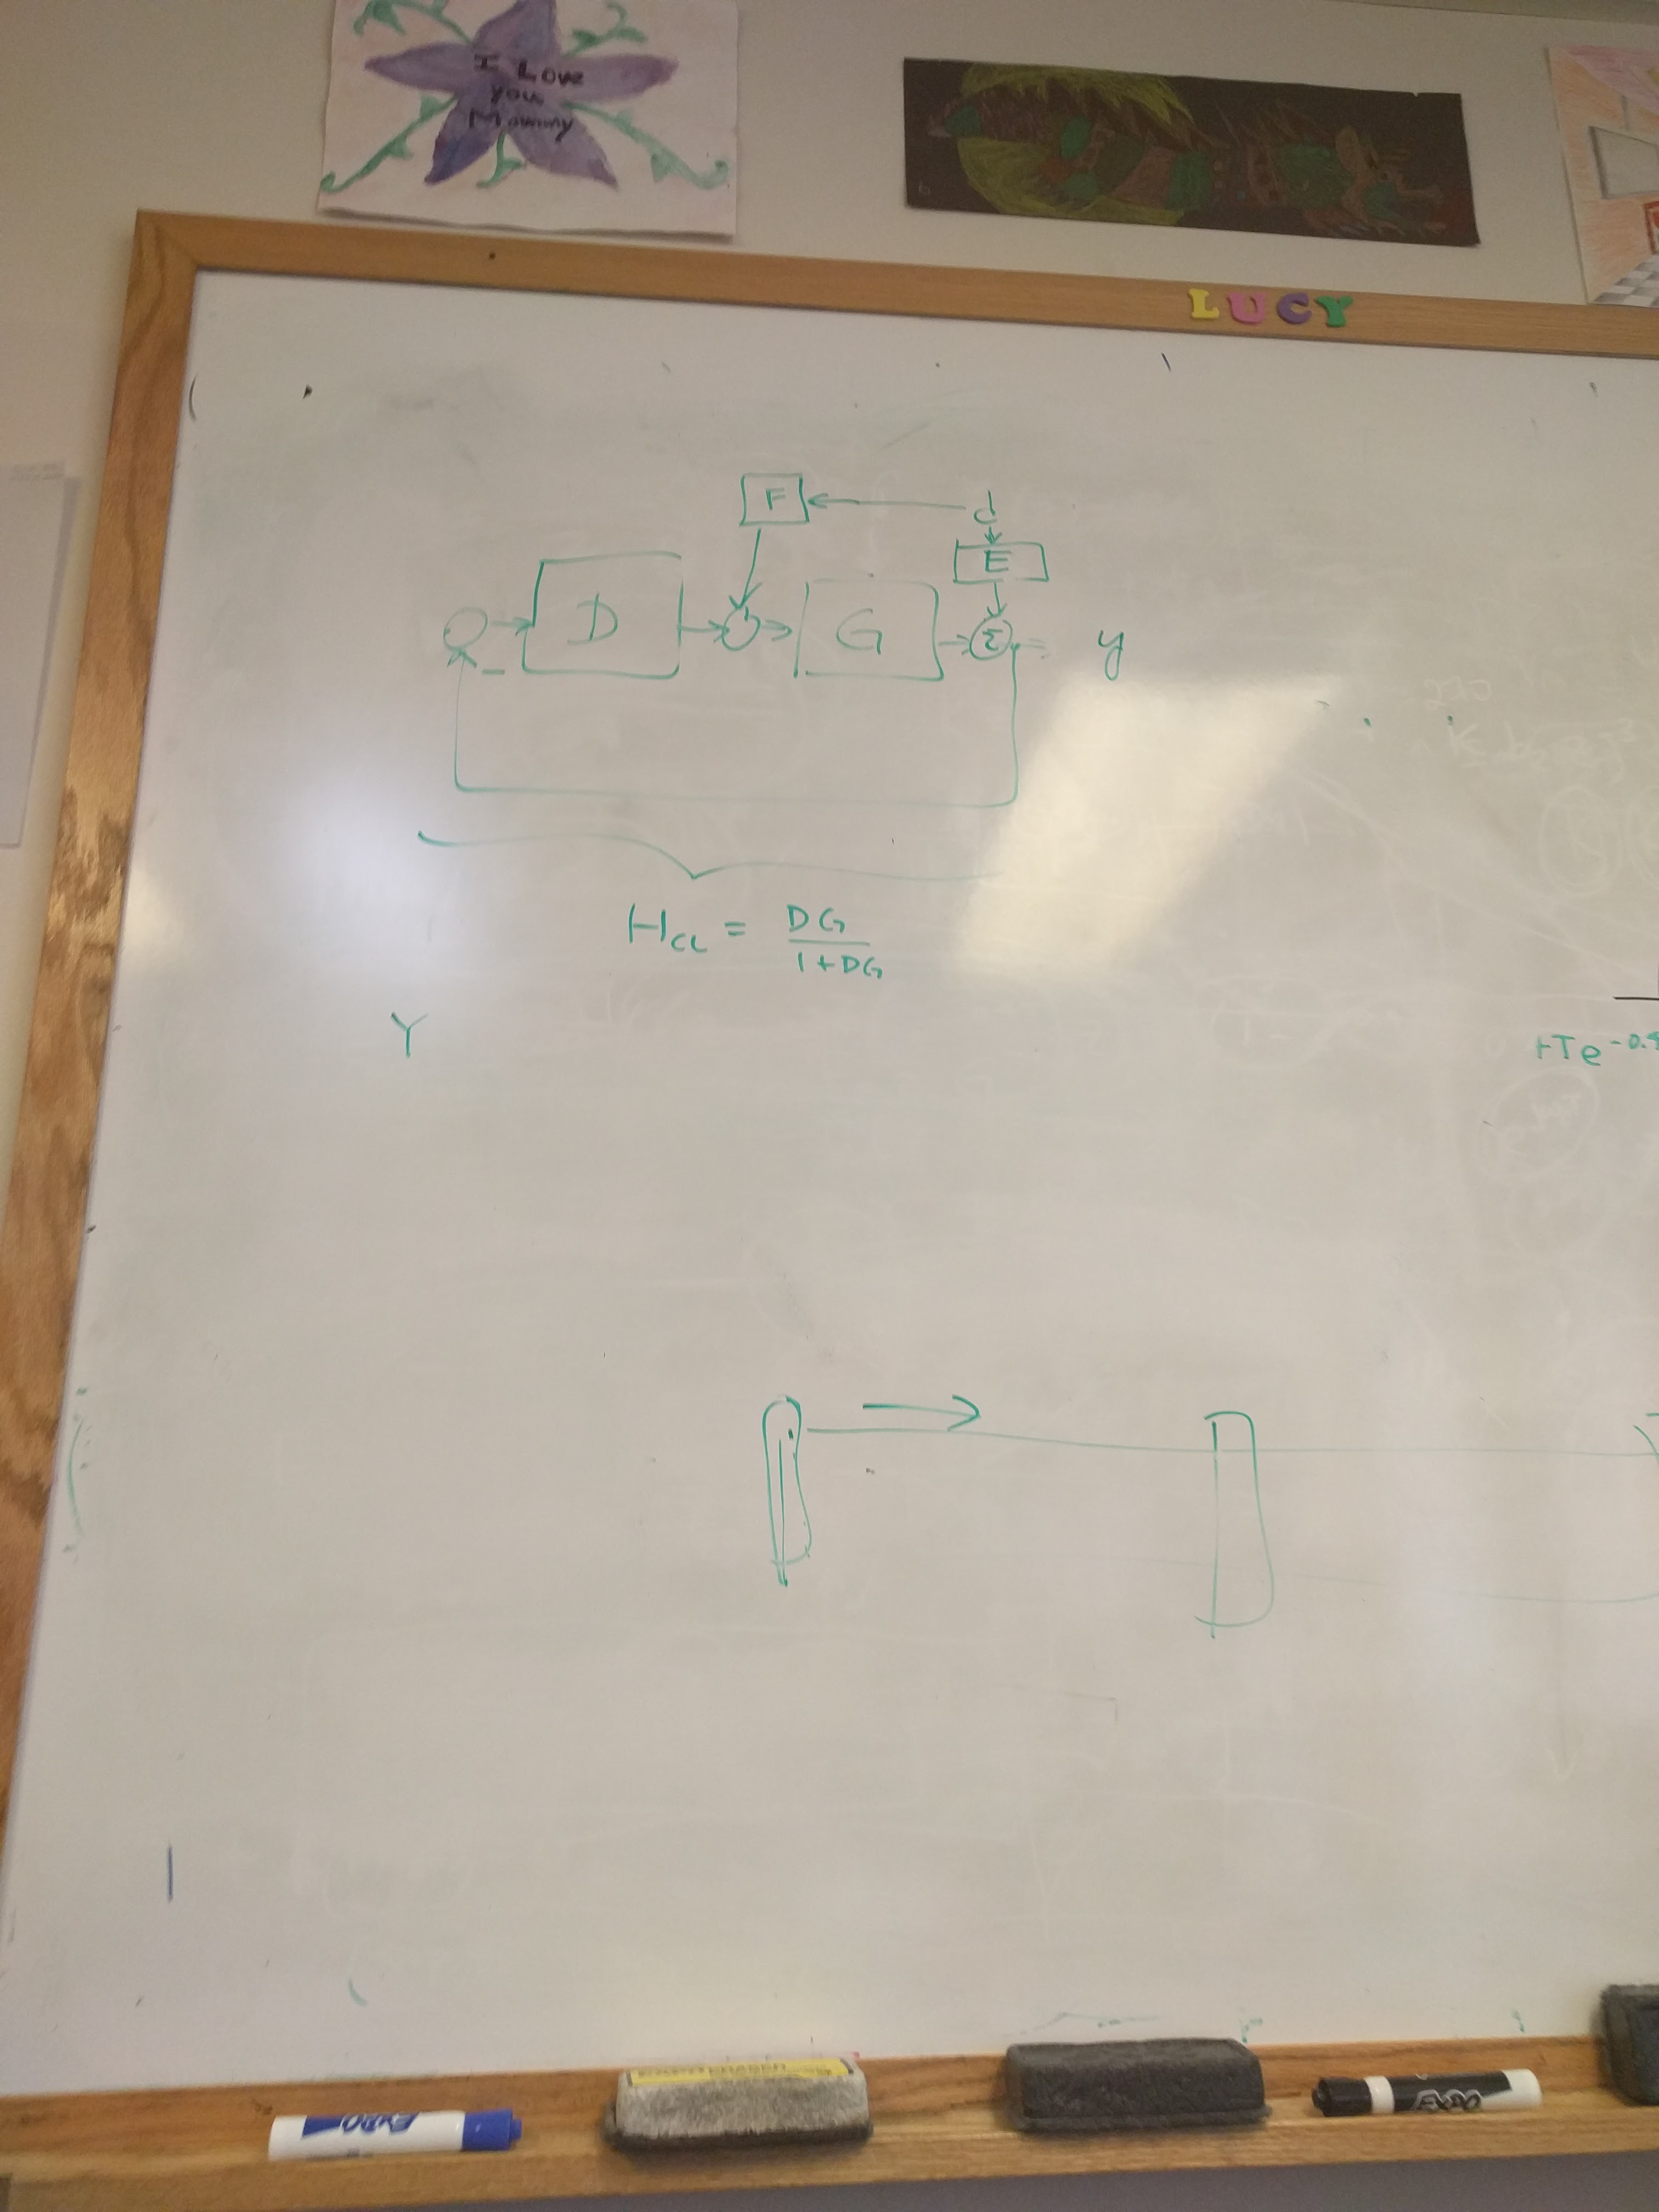 I Love
you
Mommy
LUCY
F
d
E
D
G
Σ
y
-
H_CL = DG / 1+DG
Y
EXPO
EXPO